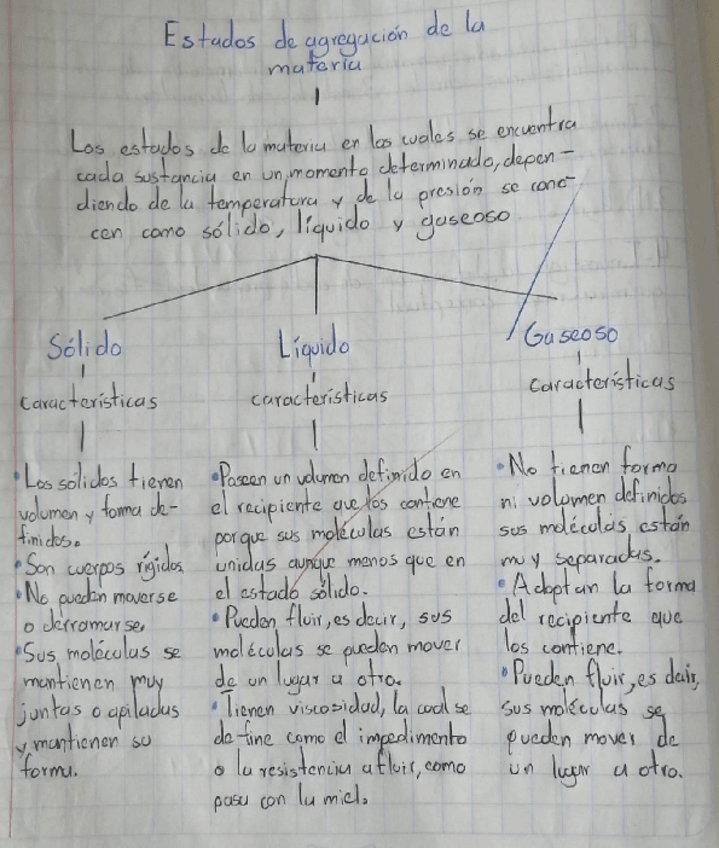 Estados de agregación de la
materia
Los estados de la materia en los cuales se encuentra
cada sustancia en un momento determinado, depen-
diendo de la temperatura y de la presión se cono-
cen como sólido, líquido y gaseoso
Sólido
características
•Los sólidos tienen
volumen y forma de-
finidos.
•Son cuerpos rígidos
•No pueden moverse
o derramarse.
•Sus moléculas se
mantienen muy
juntas o apiladas
y mantienen su
forma.
Líquido
características
•Poseen un volumen definido en
el recipiente que los contiene
porque sus moléculas están
unidas aunque menos que en
el estado sólido.
•Pueden fluir, es decir, sus
moléculas se pueden mover
de un lugar a otro.
•Tienen viscosidad, la cual se
define como el impedimento
o la resistencia a fluir, como
pasa con la miel.
Gaseoso
características
•No tienen forma
ni volumen definidos
sus moléculas están
muy separadas.
•Adoptan la forma
del recipiente que
los contiene.
•Pueden fluir, es decir,
sus moléculas se
pueden mover de
un lugar a otro.